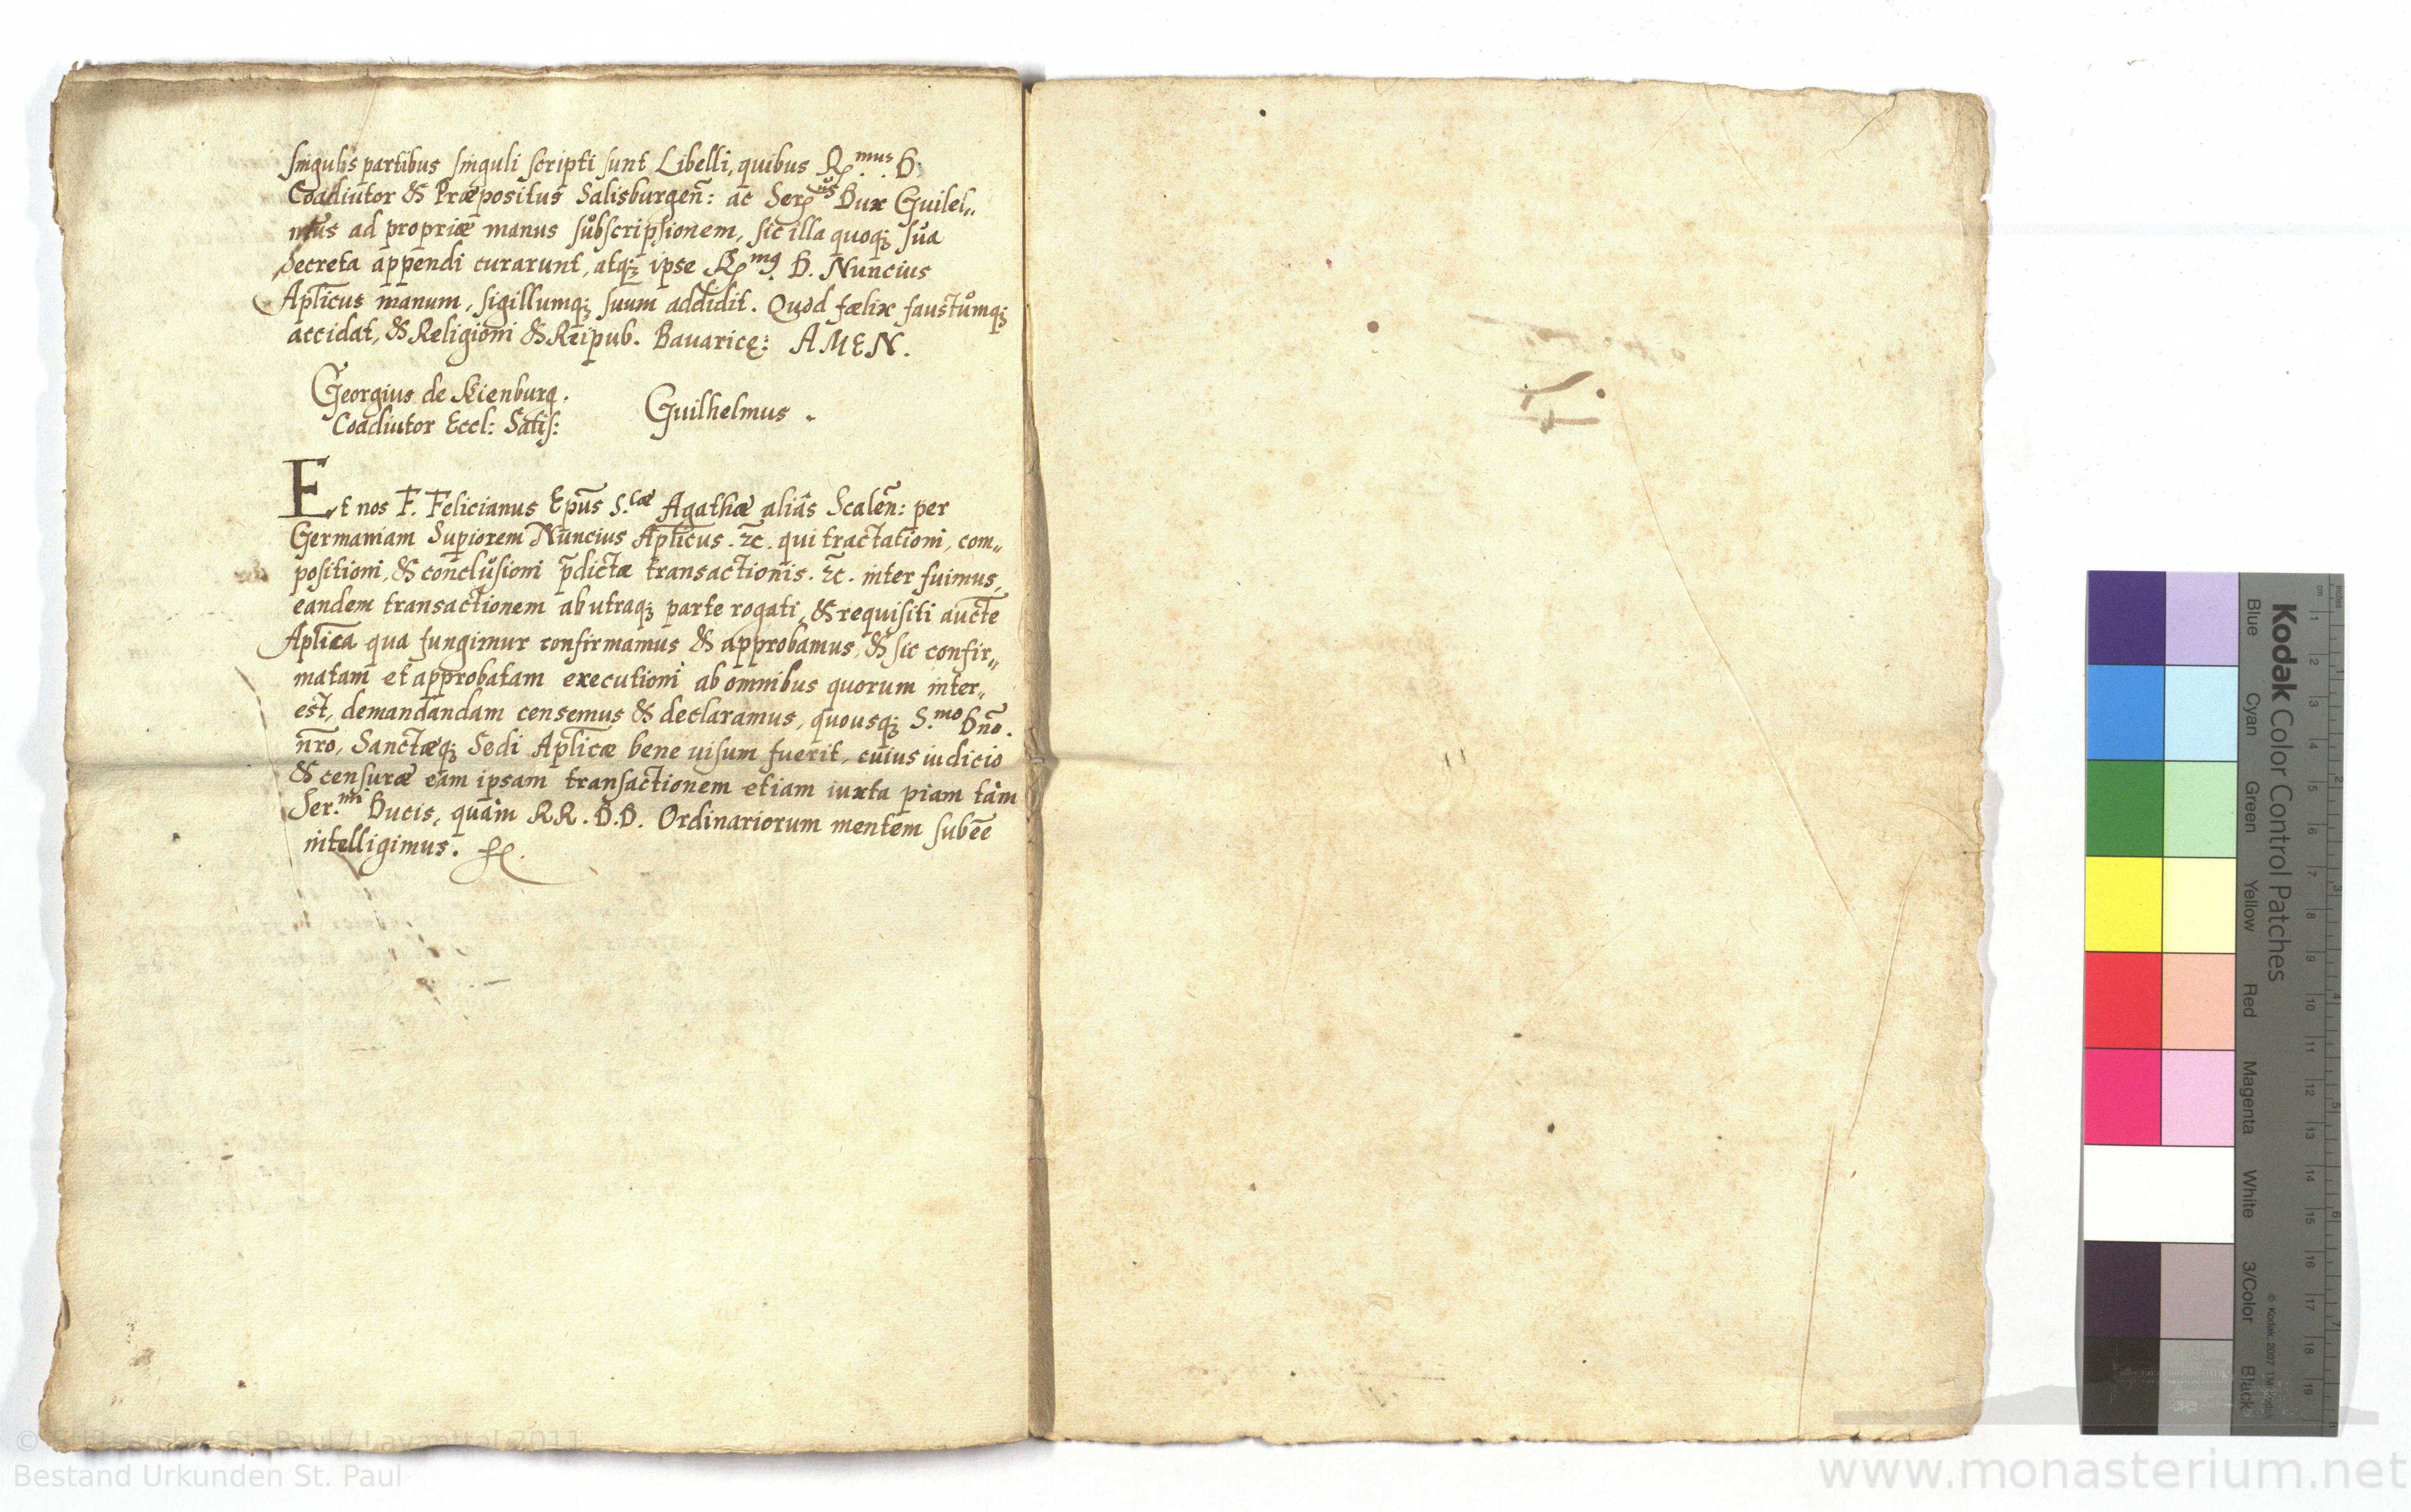 singulis partibus singuli scripti sunt Libelli, quibus R.mus D.
Coadiutor & Præpositus Salisburgen̄: ac Ser.us Dux Guilel„
mus ad propriæ manus subscripsionem, sic illa quoqꝫ sua
Secreta appendi curarunt, atqꝫ ipse R.mꝰ D. Nuncius
Ap̄licus manum, sigillumqꝫ suum addidit. Quod fælix faustumqꝫ
accidat, & Religioni & Reipub. Bauaricę: AMEN.
Georgius de Kienburg.
Coadiutor Eccl: Salis:
Guilhelmus.
Et nos F. Felicianus Ep̄us S.tæ Agathæ aliâs Scalen̄: per
Germaniam Sup̄iorem Nuncius Ap̄licus. ꝛc. qui tractationi, com„
positioni, & conclusioni p̄dictæ transactionis. ꝛc. inter fuimus,
eandem transactionem ab utraqꝫ parte rogati, & requisiti auctē
Ap̄lica qua fungimur confirmamus & approbamus, & sic confir„
matam et approbatam executioni ab omnibus quorum inter„
est, demandandam censemus & declaramus, quousqꝫ S.mo Dn̄o.
nr̄o, Sanctæqꝫ Sedi Ap̄licæ bene uisum fuerit, cuius iudicio
& censuræ eam ipsam transactionem etiam iuxta piam tàm
Ser.mi Ducis, quàm RR. D.D. Ordinariorum mentem subeē
intelligimus.
Kodak Color Control Patches
Blue Cyan Green Yellow Red Magenta White 3/Color Black
© Kodak, 2007 TM: Kodak
inches
cm
1 2 3 4 5 6 7 8 9 10 11 12 13 14 15 16 17 18 19
1 2 3 4 5 6 7 8
© Stiftsarchiv St. Paul / Lavanttal 2011
Bestand Urkunden St. Paul
www.monasterium.net